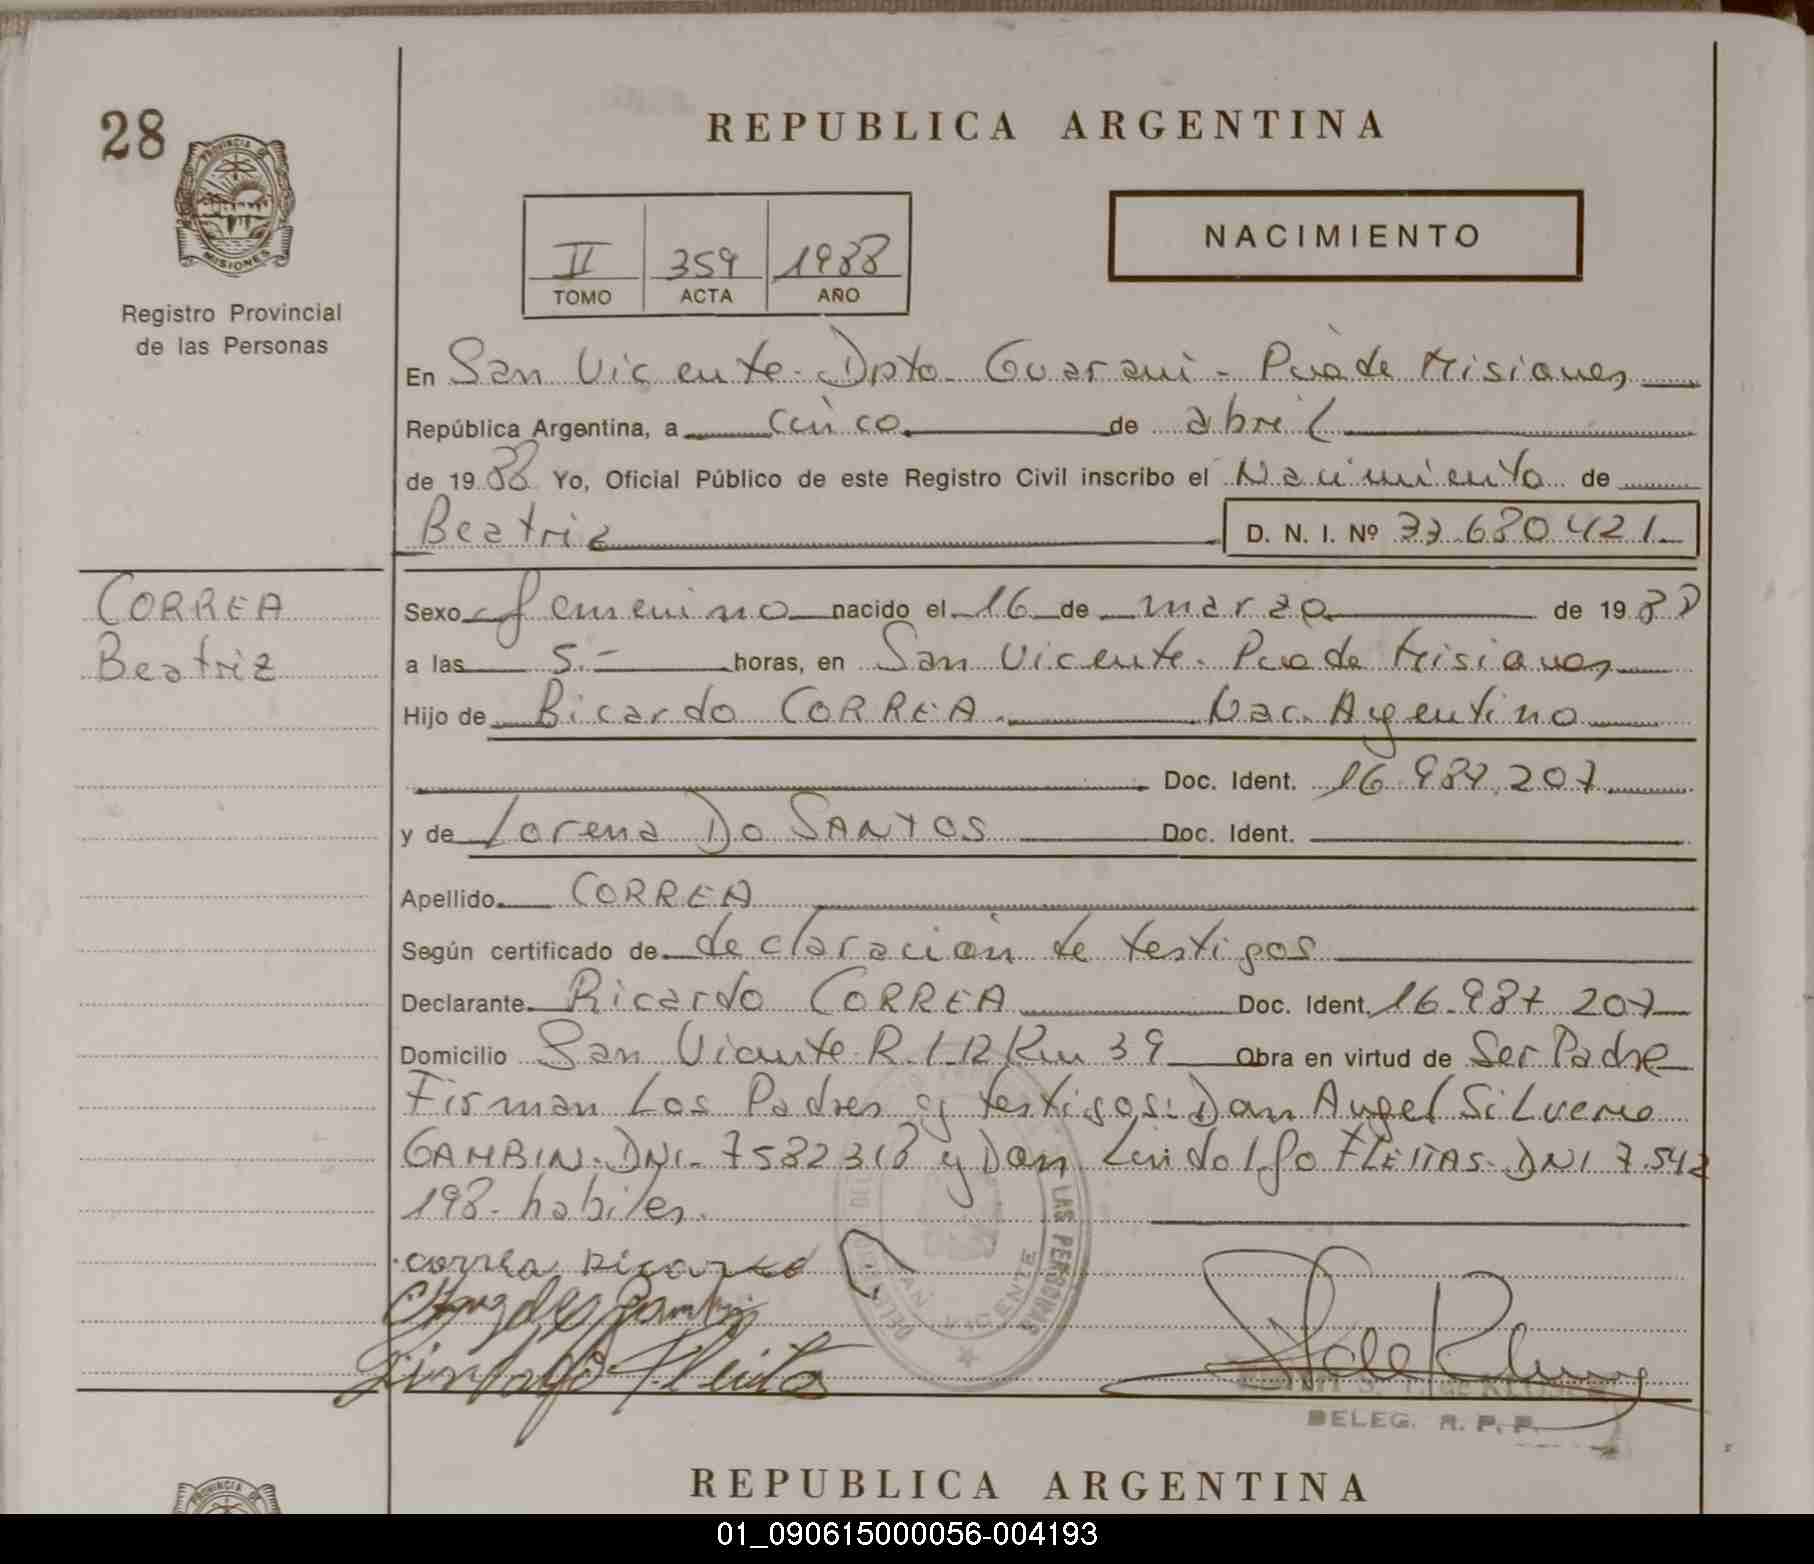 28
PROVINCIA DE
MISIONES
Registro Provincial
de las Personas
REPUBLICA ARGENTINA
II 359 1988
TOMO ACTA AÑO
NACIMIENTO
En San Vicente. Dpto. Guarani - Pcia de Misiones
República Argentina, a cinco de abril
de 1988 Yo, Oficial Público de este Registro Civil inscribo el Nacimiento de
Beatriz D. N. I. Nº 33.680.421
CORREA
Beatriz
Sexo femenino nacido el 16 de marzo de 1988
a las 5.- horas, en San Vicente. Pcia de Misiones
Hijo de Ricardo CORREA. Nac. Argentino
Doc. Ident. 16.987.207
y de Lorena Do SANTOS Doc. Ident.
Apellido CORREA
Según certificado de declaración de testigos
Declarante Ricardo CORREA Doc. Ident. 16.987.207
Domicilio San Vicente. R. Km 39 Obra en virtud de Ser Padre
Firman Los Padres y testigos: Don Angel Silverio
GAMBIN. DNI. 7582318 y Don Lindolfo FLEITAS. DNI 7.542
198. habiles.
correa Ricardo
Lindolfo Fleita
LAS PERSONAS
SAN VICENTE
DELEG. R. P. P.
REPUBLICA ARGENTINA
PROVINCIA DE
01_090615000056-004193